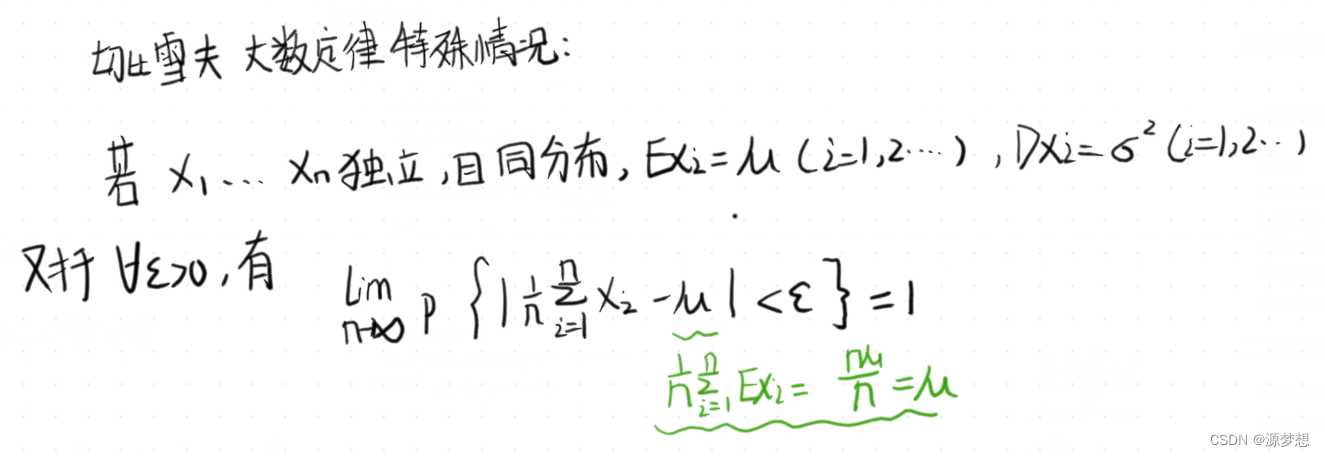 切比雪夫 大数定律 特殊情况:
若 X₁…. Xₙ 独立,且同分布, EXᵢ=μ (i=1,2…) , DXᵢ=σ² (i=1,2…)
对于 ∀ε>0,有
lim n→∞ P {|1/n Σ i=1 n Xᵢ -μ| <ε} = 1
1/n Σ i=1 n EXᵢ = nμ/n = μ
CSDN @源梦想